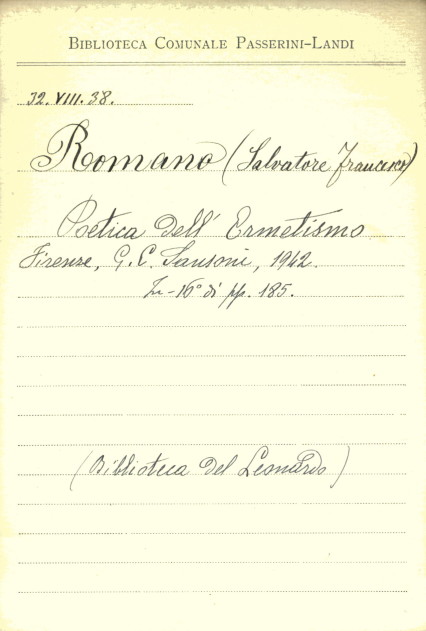 BIBLIOTECA COMUNALE PASSERINI-LANDI
J2.VIII.38.
Romano (Salvatore Francesco)
Poetica dell' Ermetismo
Firenze, G. C. Sansoni, 1942.
In-16° di pp. 185.
(Biblioteca del Leonardo)